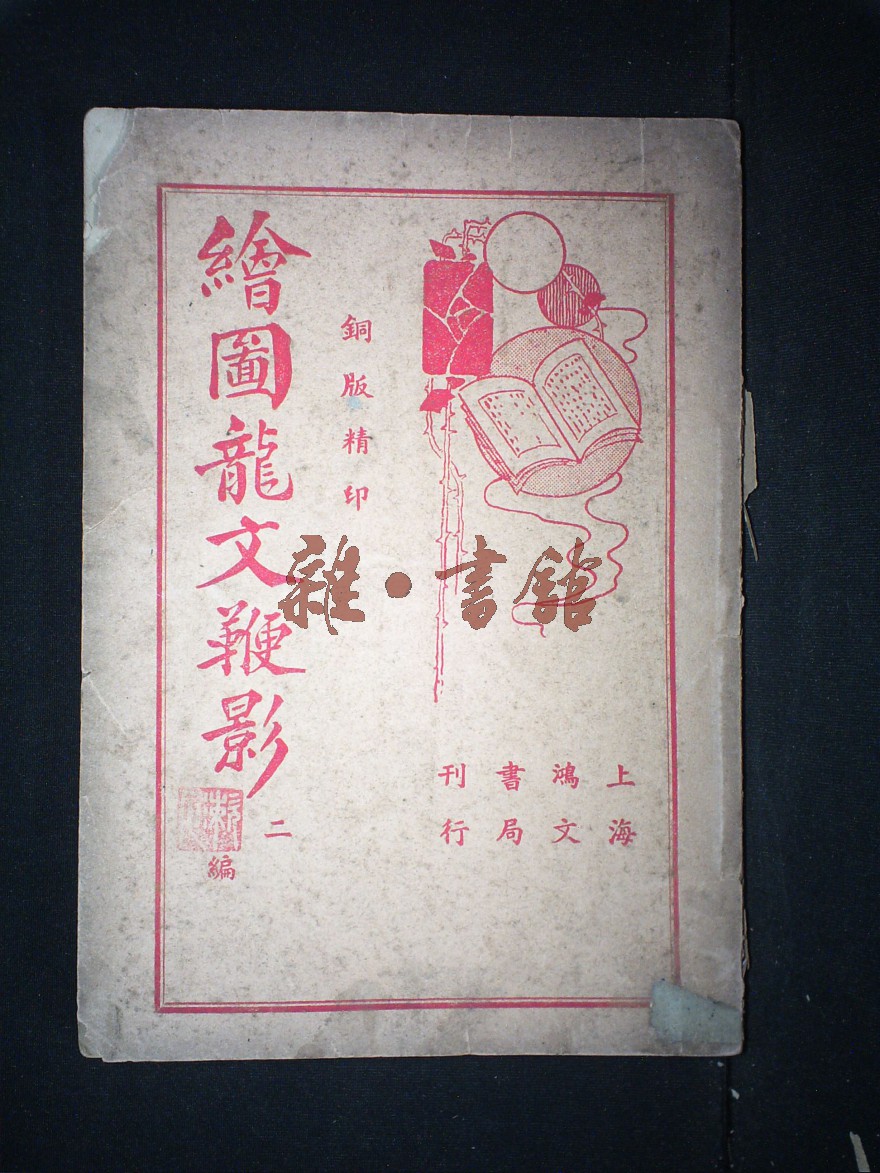 上海
鴻文
書局
刊行
銅版精印
繪圖龍文鞭影
二編
雜·書館